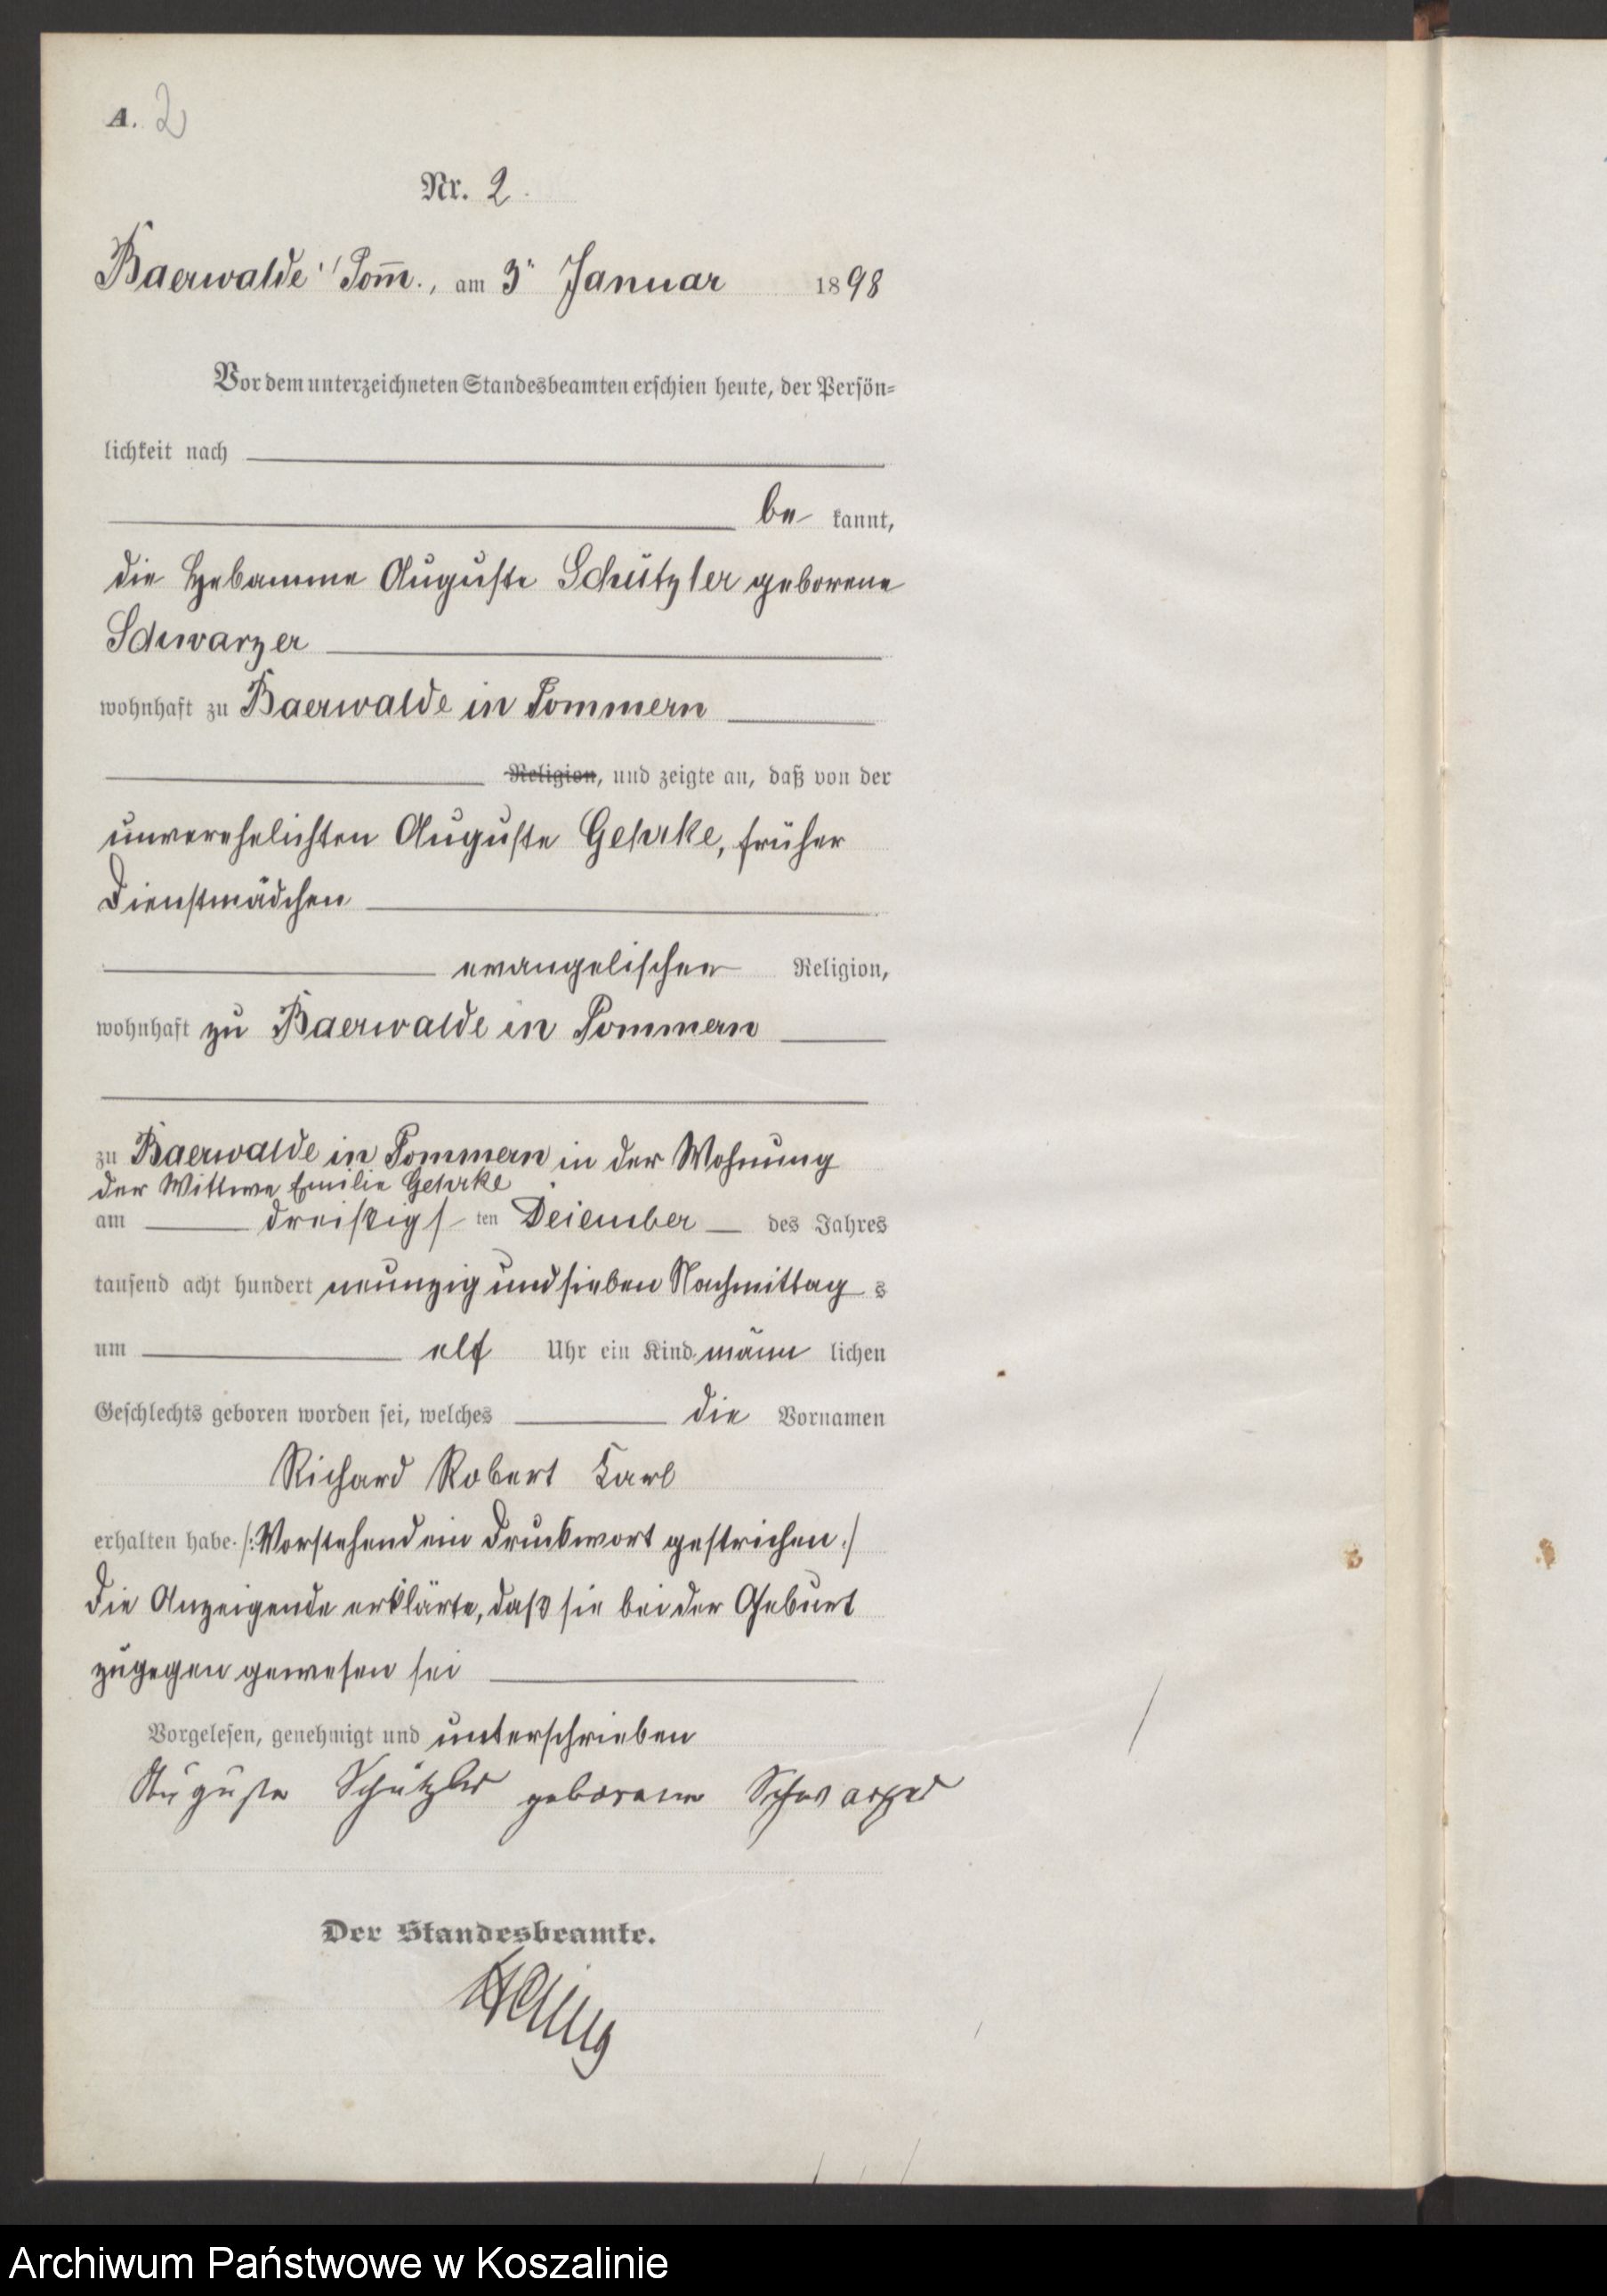 A. 2
Nr. 2.
Baerwalde i/Pom̄., am 3ᵗ Januar 1898
Vor dem unterzeichneten Standesbeamten erschien heute, der Persön=
lichkeit nach
be kannt,
die Hebamme Auguste Schützler geborene
Schwarzer
wohnhaft zu Baerwalde in Pommern
Religion, und zeigte an, daß von der
unverehelichten Auguste Gehrke, früher
Dienstmädchen
evangelischer Religion,
wohnhaft zu Baerwalde in Pommern
zu Baerwalde in Pommern in der Wohnung
der Wittwe Emilie Gehrke
am dreißigs ten Dezember des Jahres
tausend acht hundert neunzig und sieben Nachmittag s
um elf Uhr ein Kind männ lichen
Geschlechts geboren worden sei, welches die Vornamen
Richard Robert Karl
erhalten habe. /:Vorstehend ein Druckwort gestrichen:/
Die Anzeigende erklärte, daß sie bei der Geburt
zugegen gewesen sei
Vorgelesen, genehmigt und unterschrieben
Auguste Schützler geborene Schwarzer
Der Standesbeamte.
Archiwum Państwowe w Koszalinie